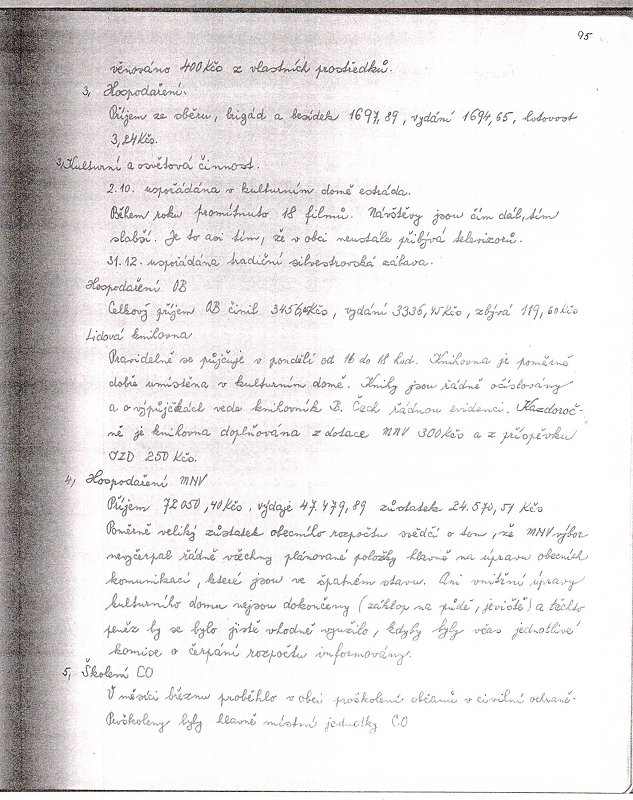 95
věnováno 400 Kčs z vlastních prostředků.
3, Hospodaření.
Příjem ze sběru, brigád a besídek 1697,89, vydání 1694,65, hotovost
3,24 Kčs.
Kulturní a osvětová činnost.
2.10. uspořádána v kulturním domě estráda.
Během roku promítnuto 18 filmů. Návštěvy jsou čím dál, tím
slabší. Je to asi tím, že v obci neustále přibývá televizorů.
31.12. uspořádána tradiční silvestrovská zábava.
Hospodaření OB
Celkový příjem OB činil Kčs, vydání 3336,45 Kčs, zbývá 119,60 Kčs
Lidová knihovna
Pravidelně se půjčuje v pondělí od 16 do 18 hod. Knihovna je poměrně
dobře umístěna v kulturním domě. Knihy jsou řádně očíslovány
a o výpůjčkách vede knihovník B. Čech řádnou evidenci. Každoroč-
ně je knihovna doplňována z dotace MNV 300 Kčs a z příspěvku
250 Kčs.
4, Hospodaření MNV
Příjem 72050,40 Kčs, výdaje 47.479,89 zůstatek 24.570,51 Kčs
Poměrně veliký zůstatek obecního rozpočtu svědčí o tom, že MNV výbor
nevyčerpal řádně všechny plánované položky hlavně na úpravu obecních
komunikací, které jsou ve špatném stavu. Ani vnitřní úpravy
kulturního domu nejsou dokončeny (záklop na půdě, jeviště) a těchto
peněz by se bylo jistě vhodně využilo, kdyby byly včas jednotlivé
komise o čerpání rozpočtu informovány.
5, Školení CO
V měsíci březnu proběhlo v obci proškolení občanů v civilní ochraně.
Proškoleny byly hlavně místní jednotky CO